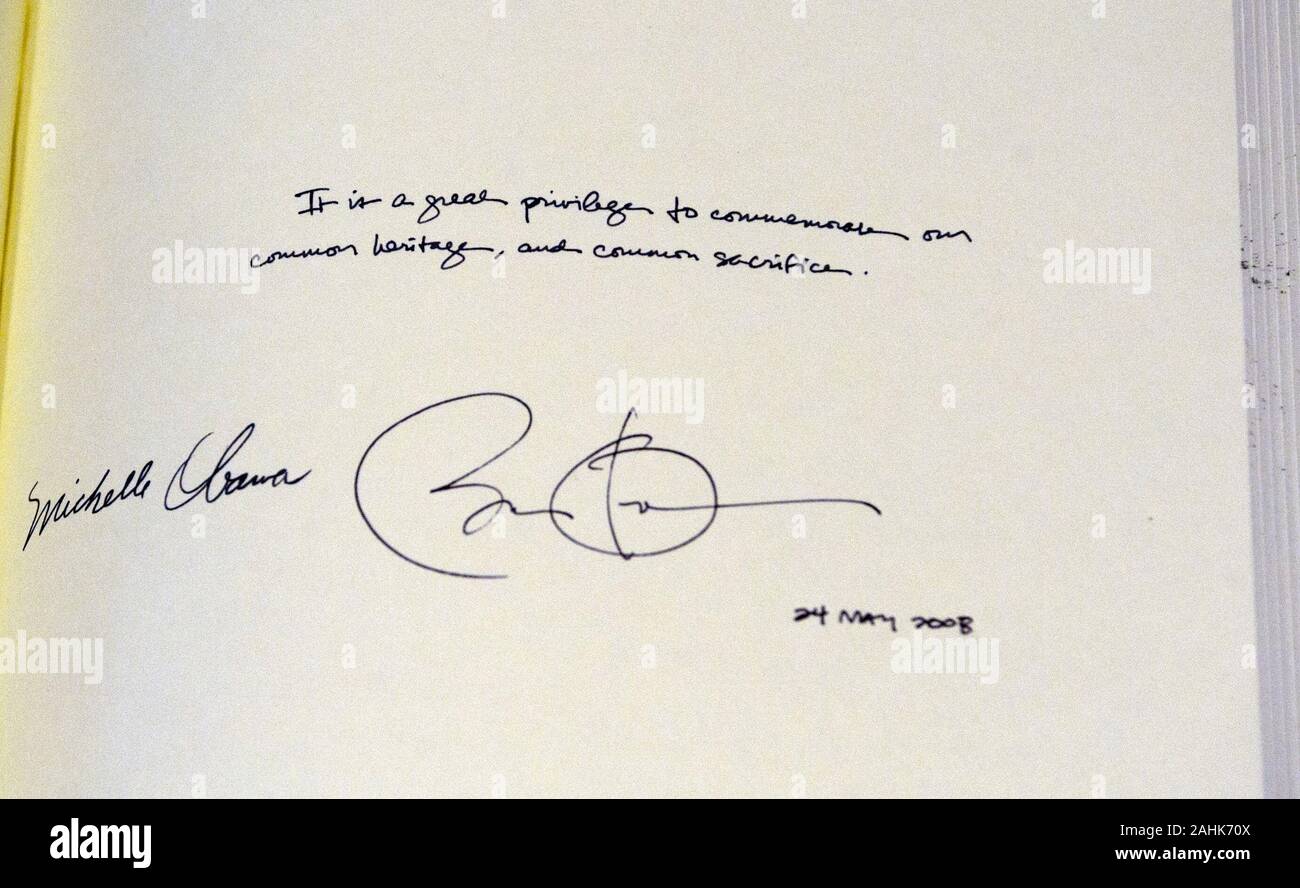 It is a great privilege to commemorate our
common heritage, and common sacrifice.
Michelle Obama
Barack Obama
24 MAY 2008
alamy
alamy
Image ID: 2AHK70X
www.alamy.com